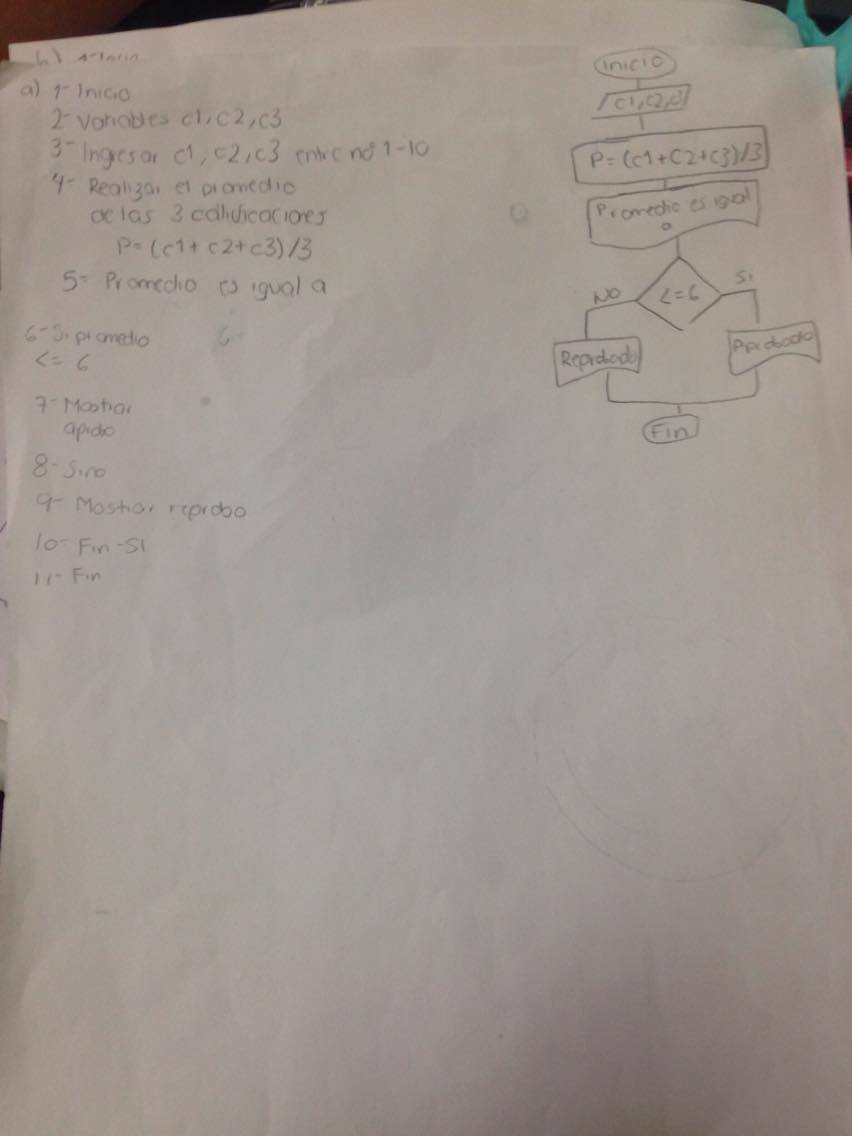 a) 1- Inicio
2- Variables c1, c2, c3
3- Ingresar c1, c2, c3 entre no 1-10
4- Realizar el promedio
de las 3 calificaciones
P= (c1 + c2 + c3) /3
5- Promedio es igual a
6- Si promedio
<= 6
7- Mostrar
8- Sino
9- Mostrar reprobo
10- Fin-SI
11- Fin
6-
inicio
c1, c2, c3
P= (c1+c2+c3)/3
Promedio es igual
a
<=6
NO
Si
Reprobado
Aprobado
Fin